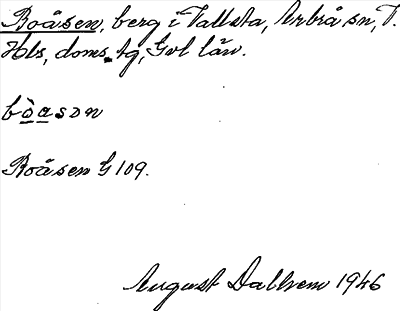 Boåsen, berg i Vallsta, Arbrå sn, V.
Hls, doms.tg, Gvl län.
bòason
Boåsen G 109.
August Dalhem 1946